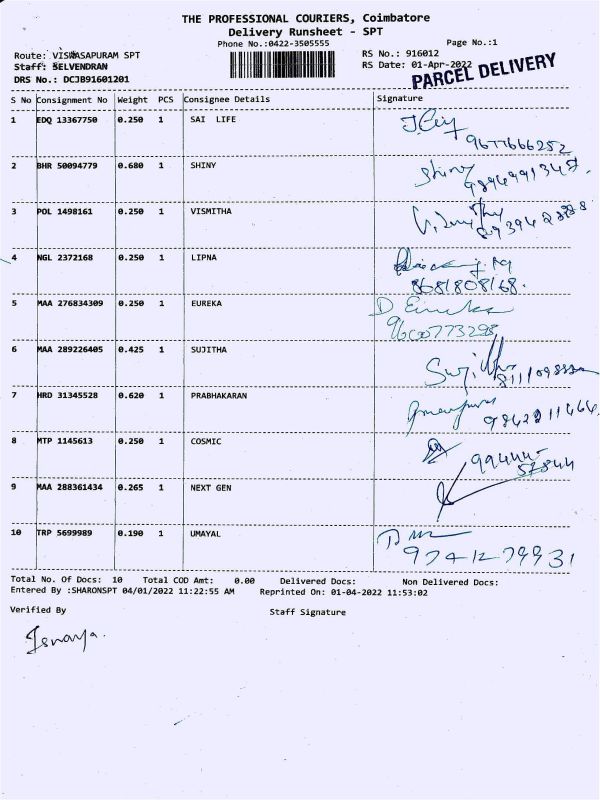 THE PROFESSIONAL COURIERS, Coimbatore
Delivery Runsheet - SPT
Phone No.:0422-3505555
Page No.:1
Route: VISWASAPURAM SPT
RS No.: 916012
Staff: SELVENDRAN
RS Date: 01-Apr-2022
DRS No.: DCJB91601201
PARCEL DELIVERY
S No Consignment No Weight PCS Consignee Details Signature
1 EDQ 13367750 0.250 1 SAI LIFE
9677666252
2 BHR 50094779 0.680 1 SHINY Shiny
3 POL 1498161 0.250 1 VISMITHA
4 NGL 2372168 0.250 1 LIPNA
8681808168.
5 MAA 276834309 0.250 1 EUREKA D Eureka
9600773298
6 MAA 289226405 0.425 1 SUJITHA Sujitha
7 HRD 31345528 0.620 1 PRABHAKARAN
8 MTP 1145613 0.250 1 COSMIC
99444-
57844
9 MAA 288361434 0.265 1 NEXT GEN
10 TRP 5699989 0.190 1 UMAYAL
Total No. Of Docs: 10 Total COD Amt: 0.00 Delivered Docs: Non Delivered Docs:
Entered By :SHARONSPT 04/01/2022 11:22:55 AM Reprinted On: 01-04-2022 11:53:02
Verified By Staff Signature